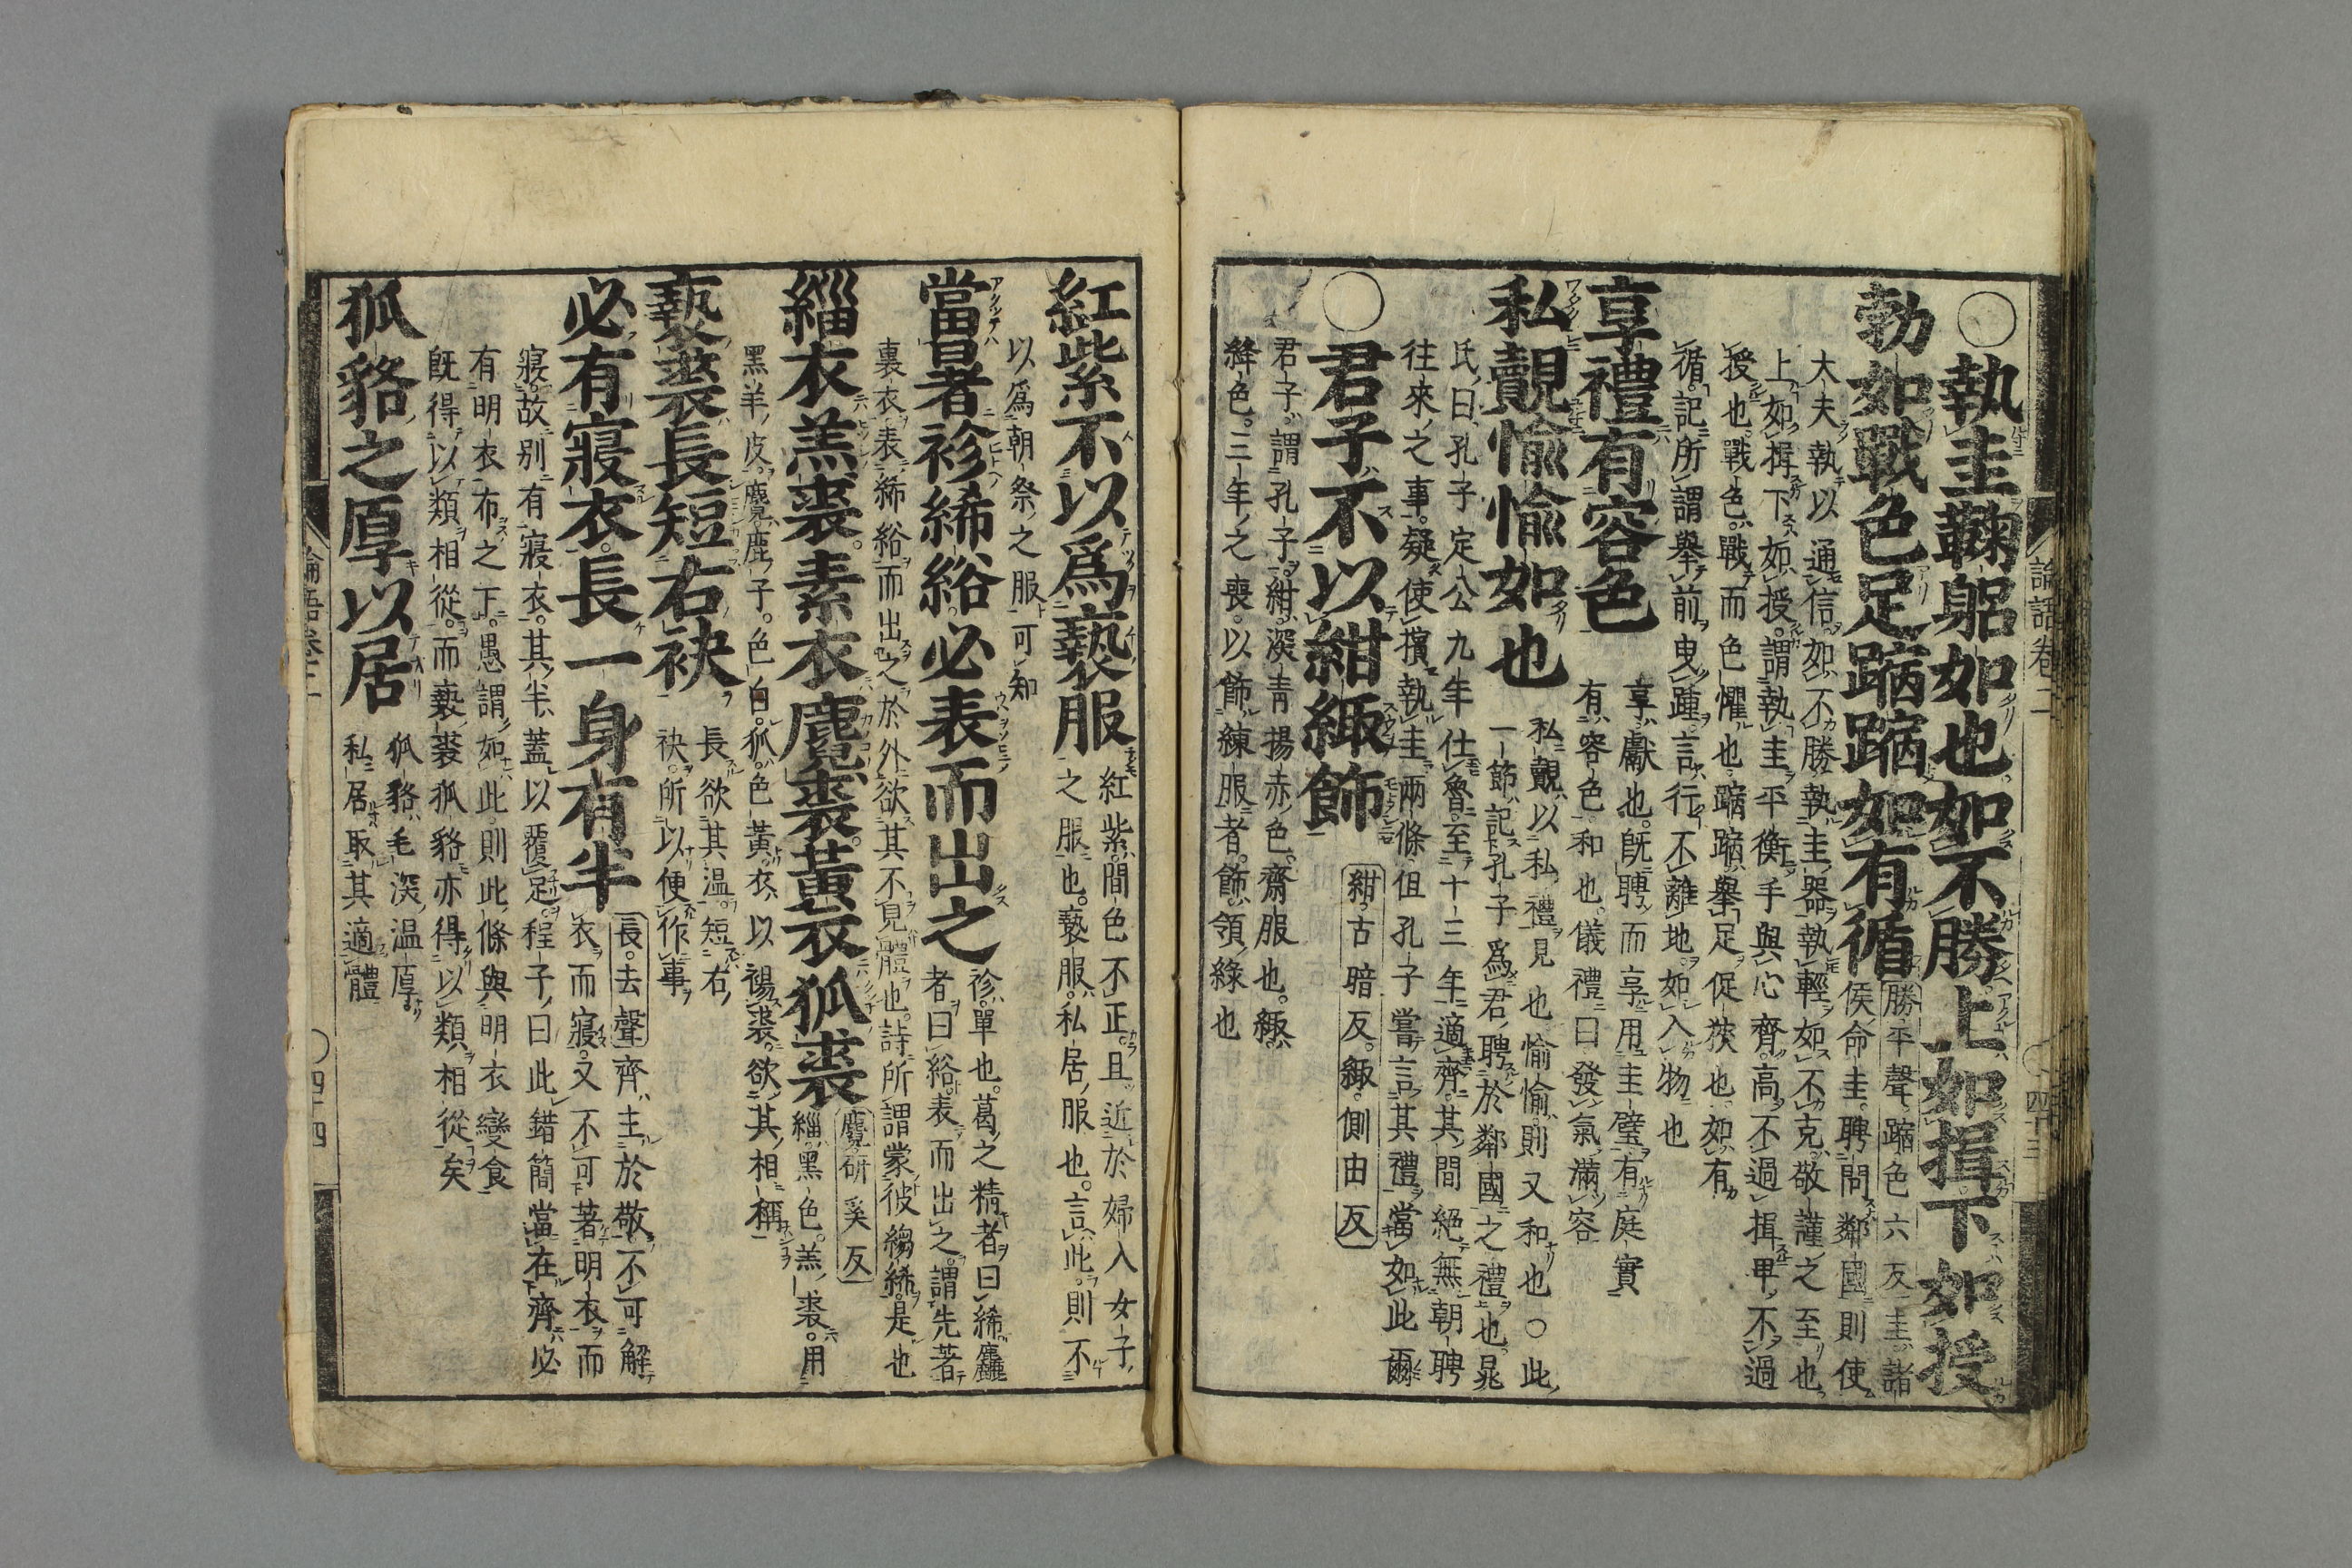 論語卷二
四十三
○執圭鞠躬如也如不勝上如揖下如授
勃如戰色足蹜蹜如有循
勝平聲蹜色六反圭諸
侯命圭聘問鄰國則使
大夫執以通信如不勝執圭器執輕如不克敬謹之至也
上如揖下如授謂執圭平衡手與心齊高不過揖卑不過
授也戰色戰而色懼也蹜蹜舉足促狹也如有
循記所謂舉前曳踵言行不離地如入物也
享禮有容色
享獻也既聘而享用圭璧有庭實
有容色和也儀禮曰發氣滿容
私覿愉愉如也
私覿以私禮見也愉愉則又和也○此
一節記孔子爲君聘於鄰國之禮也晁
氏曰孔子定公九年仕魯至十三年適齊其間絕無朝聘
往來之事疑使擯執圭兩條但孔子嘗言其禮當如此爾
○君子不以紺緅飾
紺古暗反緅側由反
君子謂孔子紺深青揚赤色齊服也緅
絳色三年之喪以飾練服者飾領緣也
紅紫不以爲褻服
紅紫間色不正且近於婦人女子
之服也褻服私居服也言此則不
以爲朝祭之服可知
當暑者袗絺綌必表而出之
袗單也葛之精者曰絺麤
者曰綌表而出之謂先著
裏衣表絺綌而出之於外欲其不見體也詩所謂蒙彼縐絺是也
緇衣羔裘素衣麑裘黃衣狐裘
麑研奚反
緇黑色羔裘用
黑羊皮麑鹿子色白狐色黃衣以裼裘欲其相稱
褻裘長短右袂
長欲其温短右
袂所以便作事
必有寢衣長一身有半
長去聲齊主於敬不可解
衣而寢又不可著明衣而
寢故別有寢衣其半蓋以覆足程子曰此錯簡當在齊必
有明衣布之下愚謂如此則此條與明衣變食
既得以類相從而褻裘狐貉亦得以類相從矣
狐貉之厚以居
狐貉毛深温厚
私居取其適體
論語卷二
四十四